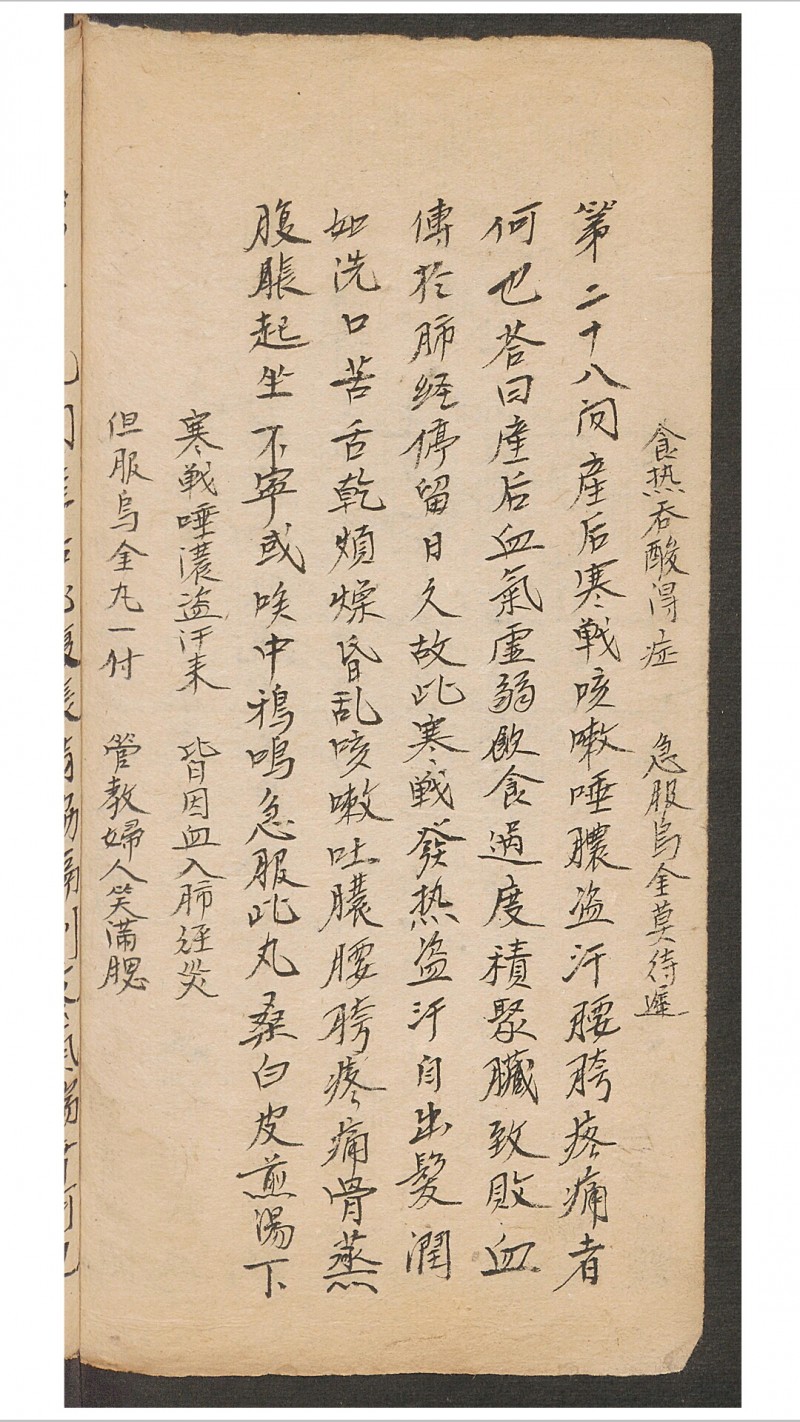 食热吞酸得症　急服烏金莫待遲
第二十八问產后寒戦咳嗽唾膿盗汗腰胯疼痛者
何也荅曰產后血氣虚弱飲食過度積聚臓致敗血
傳於肺経停留日久故此寒戦發热盗汗自出髮潤
如洗口苦舌乾煩燥昏乱咳嗽吐膿腰胯疼痛骨蒸
腹脹起坐不寧或喉中鴉鳴急服此丸桑白皮煎湯下
寒戦唾濃盗汗来　皆因血入肺経炎
但服烏金丸一付　管教婦人笑滿腮